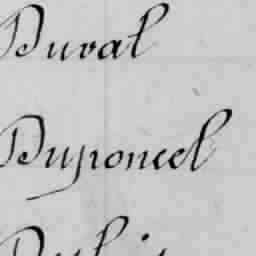 Duval
Duponcel